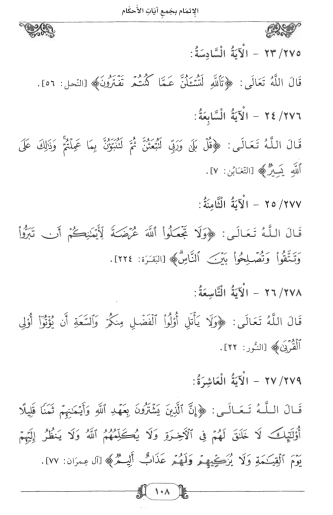 الإتمام بجمع آيات الأحكام
٢٣/٢٧٥ - الْآيَةُ السَّادِسَةُ:
قَالَ اللَّهُ تَعَالَى: ﴿تَاللَّهِ لَتُسْأَلُنَّ عَمَّا كُنتُمْ تَفْتَرُونَ﴾ [النحل: ٥٦].
٢٤/٢٧٦ - الْآيَةُ السَّابِعَةُ:
قَالَ اللَّهُ تَعَالَى: ﴿قُلْ بَلَى وَرَبِّي لَتُبْعَثُنَّ ثُمَّ لَتُنَبَّؤُنَّ بِمَا عَمِلْتُمْ وَذَلِكَ عَلَى
اللَّهِ يَسِيرٌ﴾ [التَّغَابُن: ٧].
٢٥/٢٧٧ - الْآيَةُ الثَّامِنَةُ:
قَالَ اللَّهُ تَعَالَى: ﴿وَلَا تَجْعَلُوا اللَّهَ عُرْضَةً لِأَيْمَانِكُمْ أَن تَبَرُّوا
وَتَتَّقُوا وَتُصْلِحُوا بَيْنَ النَّاسِ﴾ [البَقَرَة: ٢٢٤].
٢٦/٢٧٨ - الْآيَةُ التَّاسِعَةُ:
قَالَ اللَّهُ تَعَالَى: ﴿وَلَا يَأْتَلِ أُوْلُوا الْفَضْلِ مِنكُمْ وَالسَّعَةِ أَن يُؤْتُوا أُوْلِي
الْقُرْبَى﴾ [النُّور: ٢٢].
٢٧/٢٧٩ - الْآيَةُ الْعَاشِرَةُ:
قَالَ اللَّهُ تَعَالَى: ﴿إِنَّ الَّذِينَ يَشْتَرُونَ بِعَهْدِ اللَّهِ وَأَيْمَانِهِمْ ثَمَنًا قَلِيلًا
أُوْلَئِكَ لَا خَلَاقَ لَهُمْ فِي الْآخِرَةِ وَلَا يُكَلِّمُهُمُ اللَّهُ وَلَا يَنظُرُ إِلَيْهِمْ
يَوْمَ الْقِيَامَةِ وَلَا يُزَكِّيهِمْ وَلَهُمْ عَذَابٌ أَلِيمٌ﴾ [آل عِمرَان: ٧٧].
١٠٨